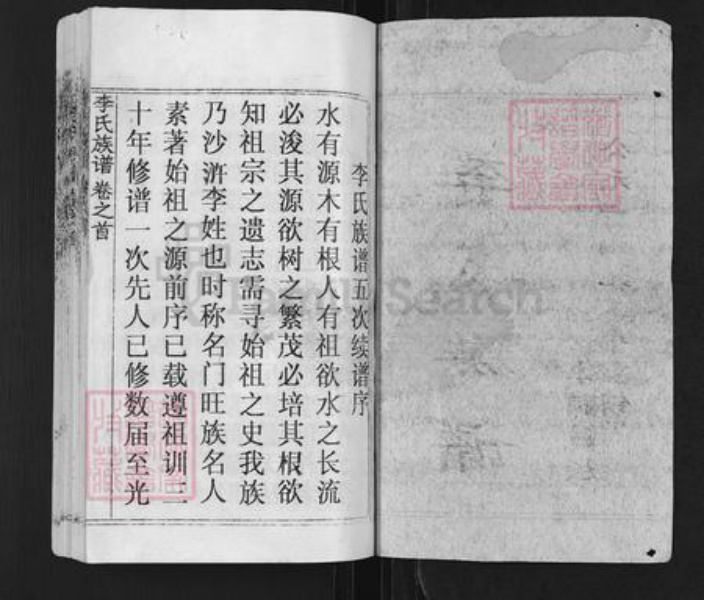 李氏族谱五次续谱序
水有源木有根人有祖欲水之长流
必浚其源欲树之繁茂必培其根欲
知祖宗之遗志需寻始祖之史我族
乃沙浒李姓也时称名门旺族名人
素著始祖之源前序已载遵祖训三
十年修谱一次先人已修数届至光
李氏族谱 卷之首
FamilySearch